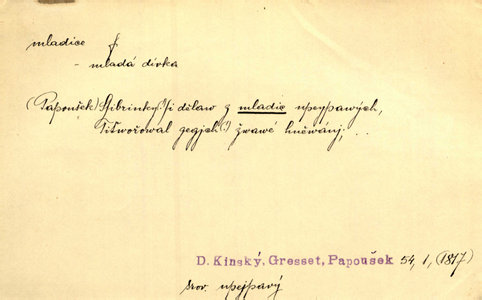 mladice f
- mladá dívka
(Papoušek) Stibrinky: Ji dělaw z mladic upeypawých,
Titwořowal gegjch (!) žwawé hněwánj; ..
D. Kinský, Gresset, Papoušek 54, 1, (1817)
srov. upejpavý